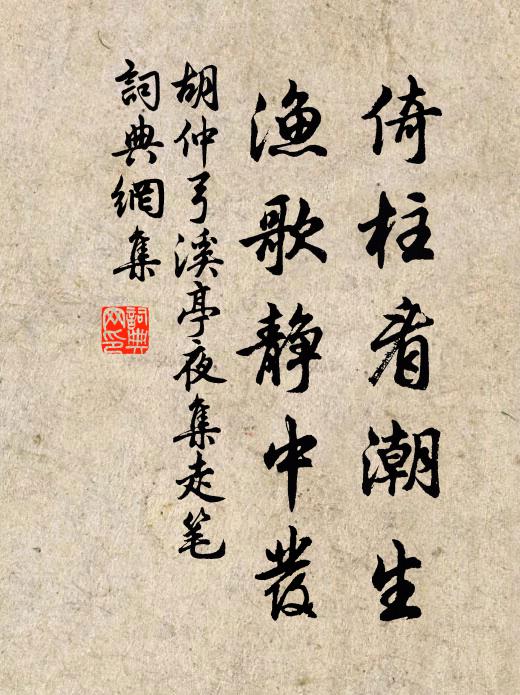 倚柱看潮生
漁歌靜中發
胡仲弓溪亭夜集走笔
詞典網集
詞典网印